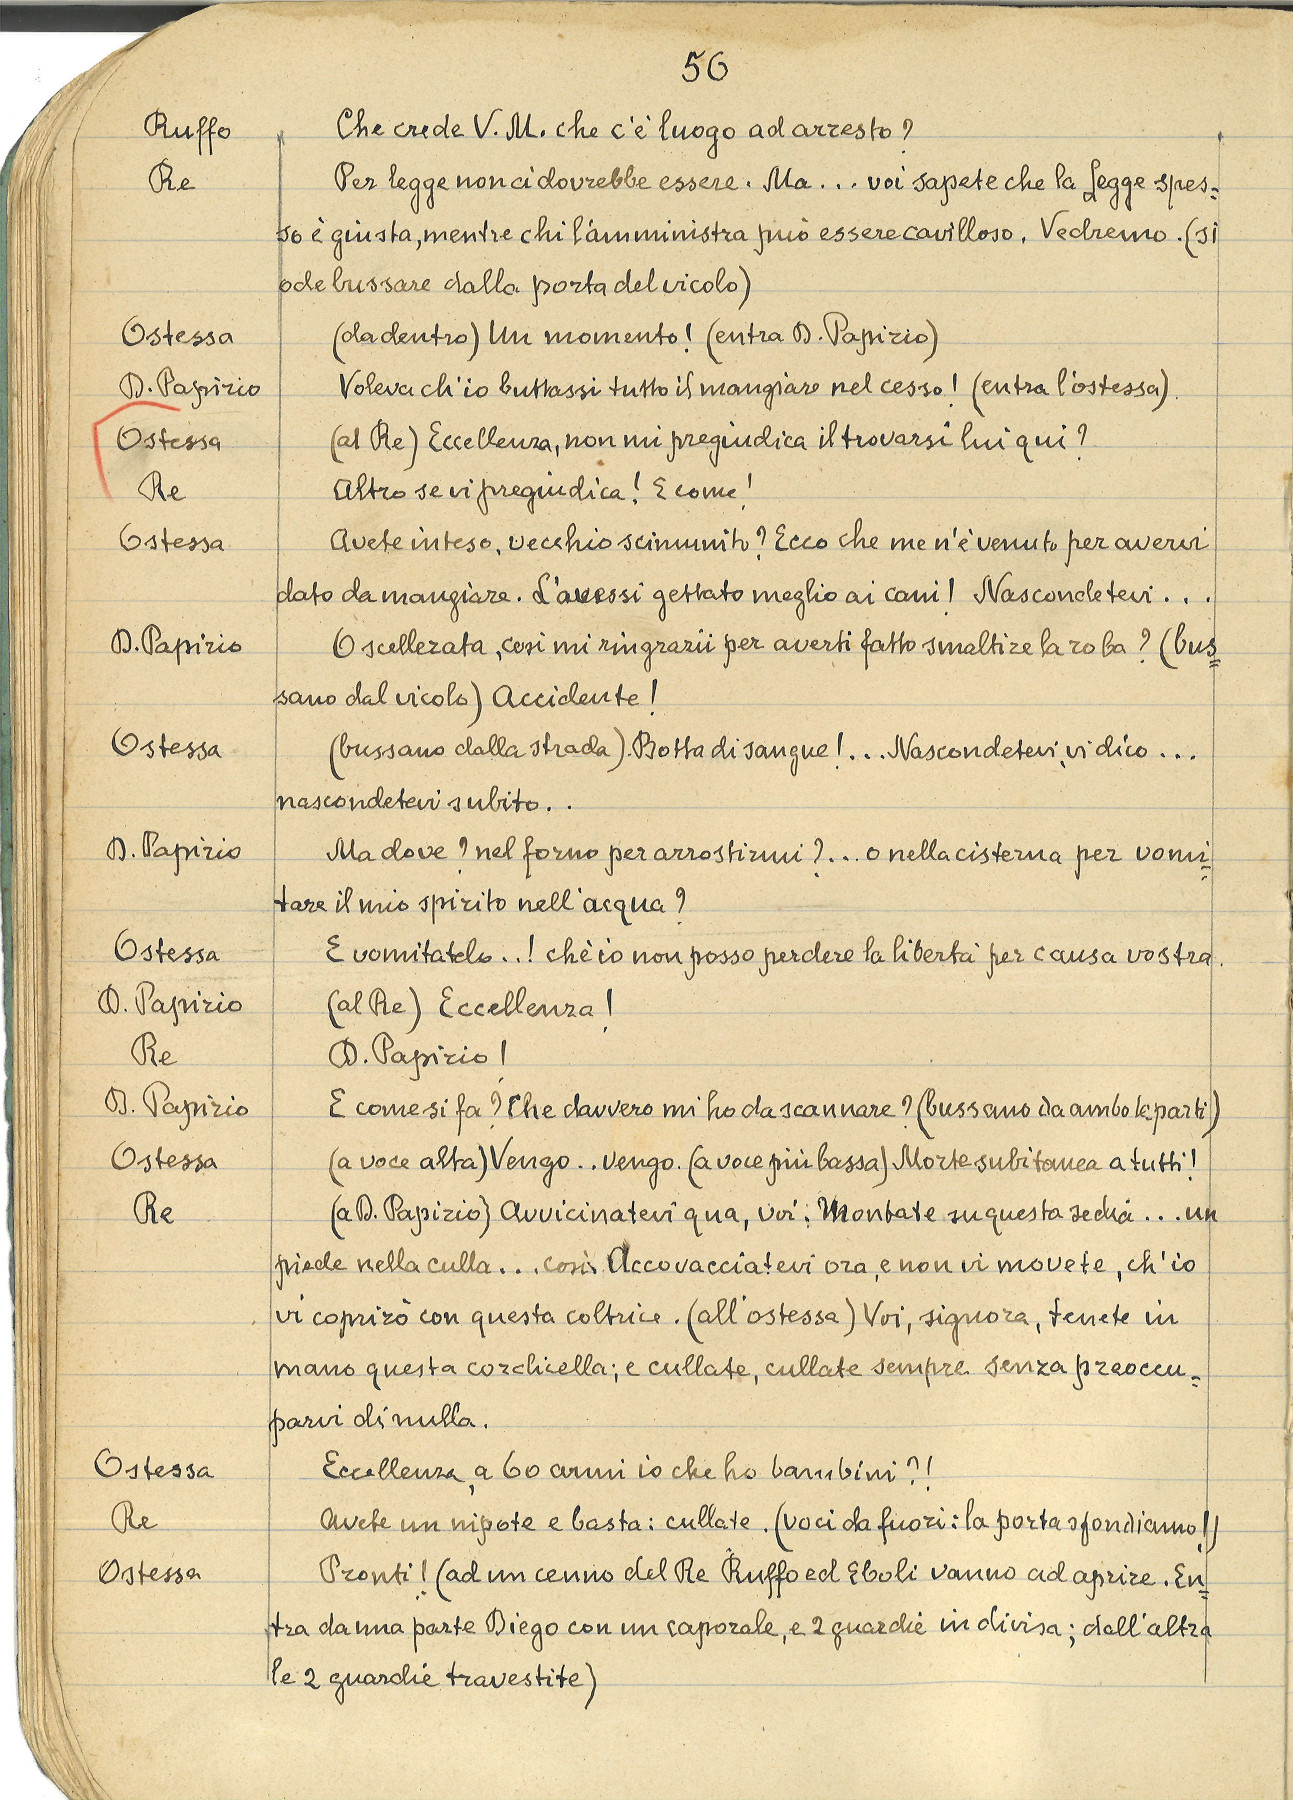 56
Ruffo Che crede V. M. che c'è luogo ad arresto?
Re Per legge non ci dovrebbe essere. Ma... voi sapete che la Legge spes=
so è giusta, mentre chi l'amministra può essere cavilloso. Vedremo. (si
ode bussare dalla porta del vicolo)
Ostessa (da dentro) Un momento! (entra D. Papirio)
D. Papirio Voleva ch'io buttassi tutto il mangiare nel cesso! (entra l'ostessa).
Ostessa (al Re) Eccellenza, non mi pregiudica il trovarsi lui qui?
Re Altro se vi pregiudica! E come!
Ostessa Avete inteso, vecchio scimunito? Ecco che me n'è venuto per avervi
dato da mangiare. L'avessi gettato meglio ai cani! Nascondetevi...
D. Papirio O scellerata, così mi ringrazii per averti fatto smaltire la roba? (bus=
sano dal vicolo) Accidente!
Ostessa (bussano dalla strada). Botta di sangue!... Nascondetevi, vi dico...
nascondetevi subito..
D. Papirio Ma dove? nel forno per arrostirmi?... o nella cisterna per vomi=
tare il mio spirito nell'acqua?
Ostessa E vomitatelo..! chè io non posso perdere la libertà per causa vostra.
D. Papirio (al Re) Eccellenza!
Re D. Papirio!
D. Papirio E come si fa? Che davvero mi ho da scannare? (bussano da ambo le parti)
Ostessa (a voce alta) Vengo.. vengo. (a voce più bassa) Morte subitanea a tutti!
Re (a D. Papirio) Avvicinatevi qua, voi. Montate su questa sedia... un
piede nella culla... così. Accovacciatevi ora, e non vi movete, ch'io
vi coprirò con questa coltrice. (all'ostessa) Voi, signora, tenete in
mano questa cordicella; e cullate, cullate sempre senza preoccu=
parvi di nulla.
Ostessa Eccellenza, a 60 anni io che ho bambini?!
Re Avete un nipote e basta: cullate. (voci da fuori: la porta sfondiamo!)
Ostessa Pronti! (ad un cenno del Re Ruffo ed Eboli vanno ad aprire. En=
tra da una parte Diego con un caporale, e 2 guardie in divisa; dall'altra
le 2 guardie travestite)